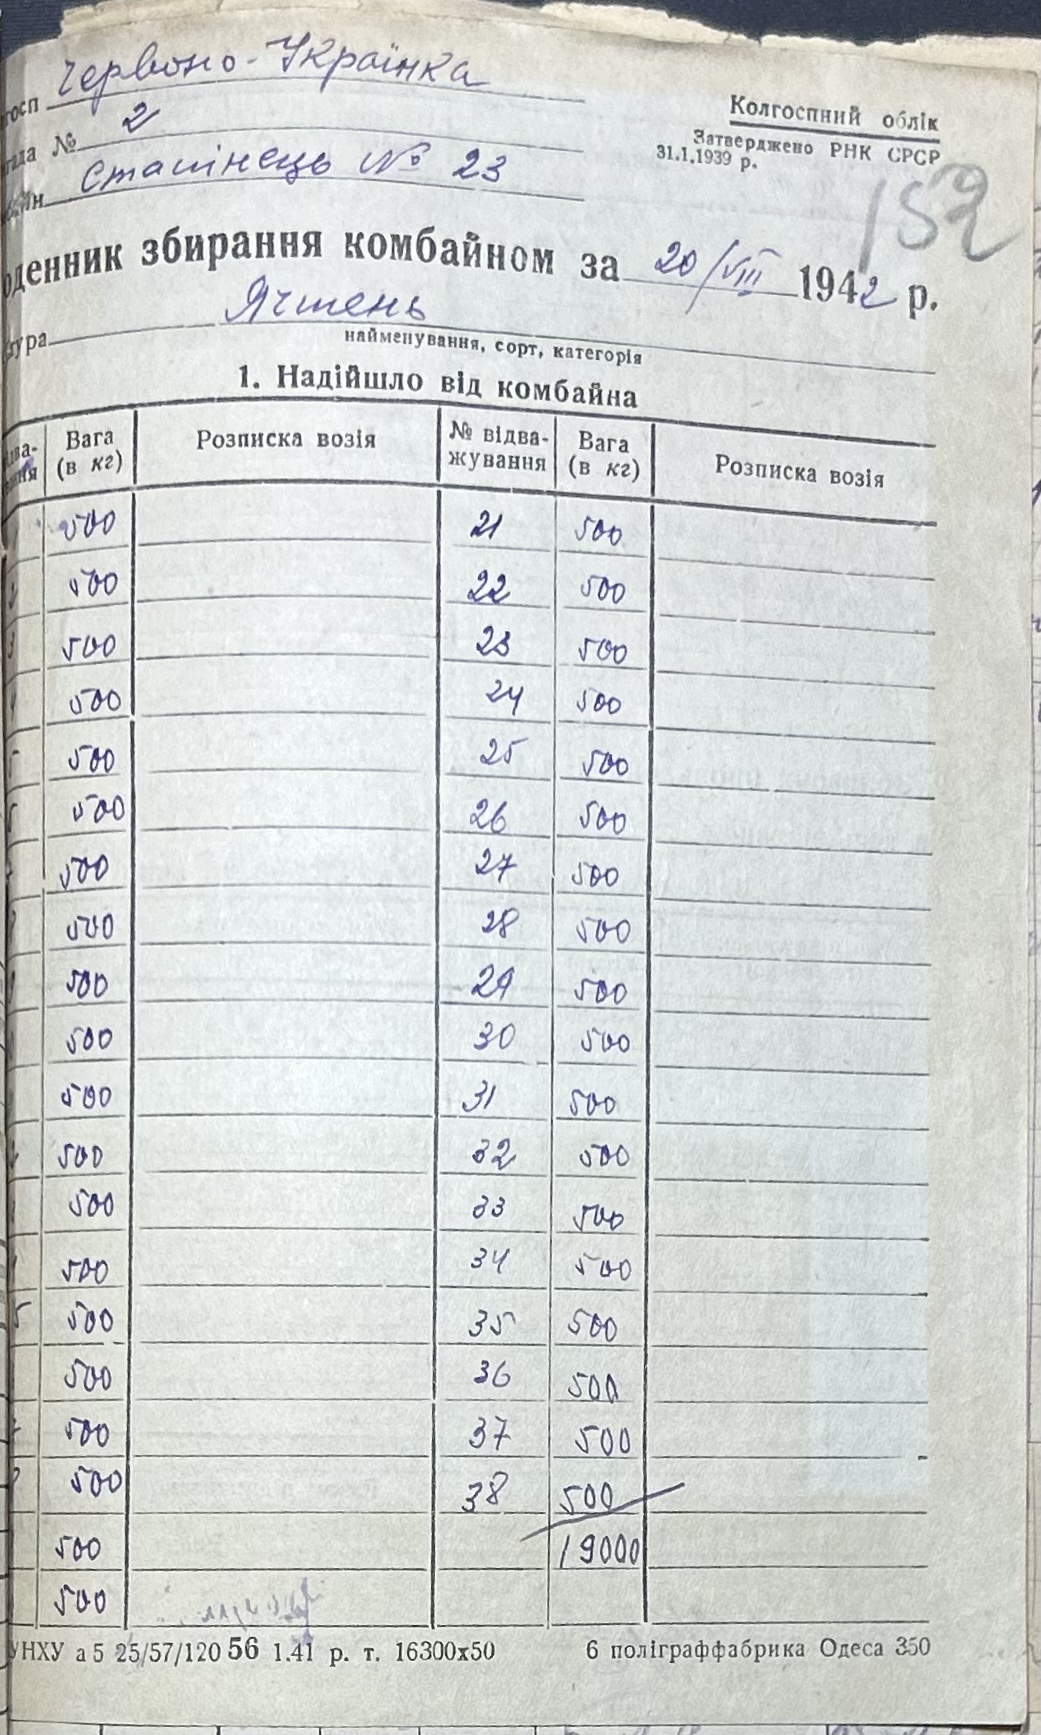 госп Червоно-Українка
гада № 2
айн Сталінець № 23
Колгоспний облік
Затверджено РНК СРСР
31.1.1939 р.
152
оденник збирання комбайном за 20/VIII 1942 р.
тура Ячмень
найменування, сорт, категорія
1. Надійшло від комбайна
Вага (в кг) Розписка возія № відва-жування Вага (в кг) Розписка возія
500 21 500
500 22 500
3 500 23 500
500 24 500
500 25 500
500 26 500
500 27 500
500 28 500
500 29 500
500 30 500
500 31 500
500 32 500
500 33 500
500 34 500
5 500 35 500
500 36 500
500 37 500
500 38 500
500 19000
500
УНХУ а5 25/57/120 56 1.41 р. т. 16300х50 6 поліграффабрика Одеса 350